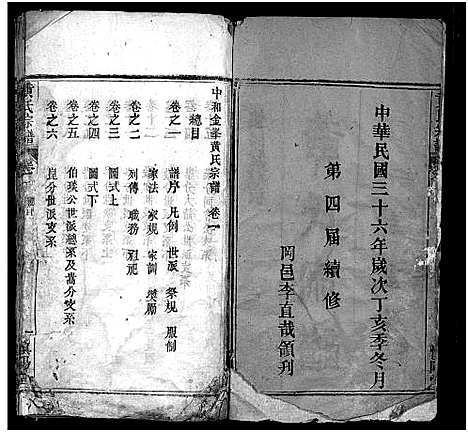 中華民國三十六年歲次丁亥季冬月
第四届續修
岡邑李直哉領刊
中和金峯黃氏宗譜 卷一
總目
卷之一 譜序 凡例 世派 祭規 服制
卷之二 家法 家規 家訓 獎勵
卷之三 列傳 職務 祖祀
卷之四 圖式上
卷之五 圖式下
卷之六
伯瑛公世派總系及嵩分支系
崑分世派支系
黃氏宗譜